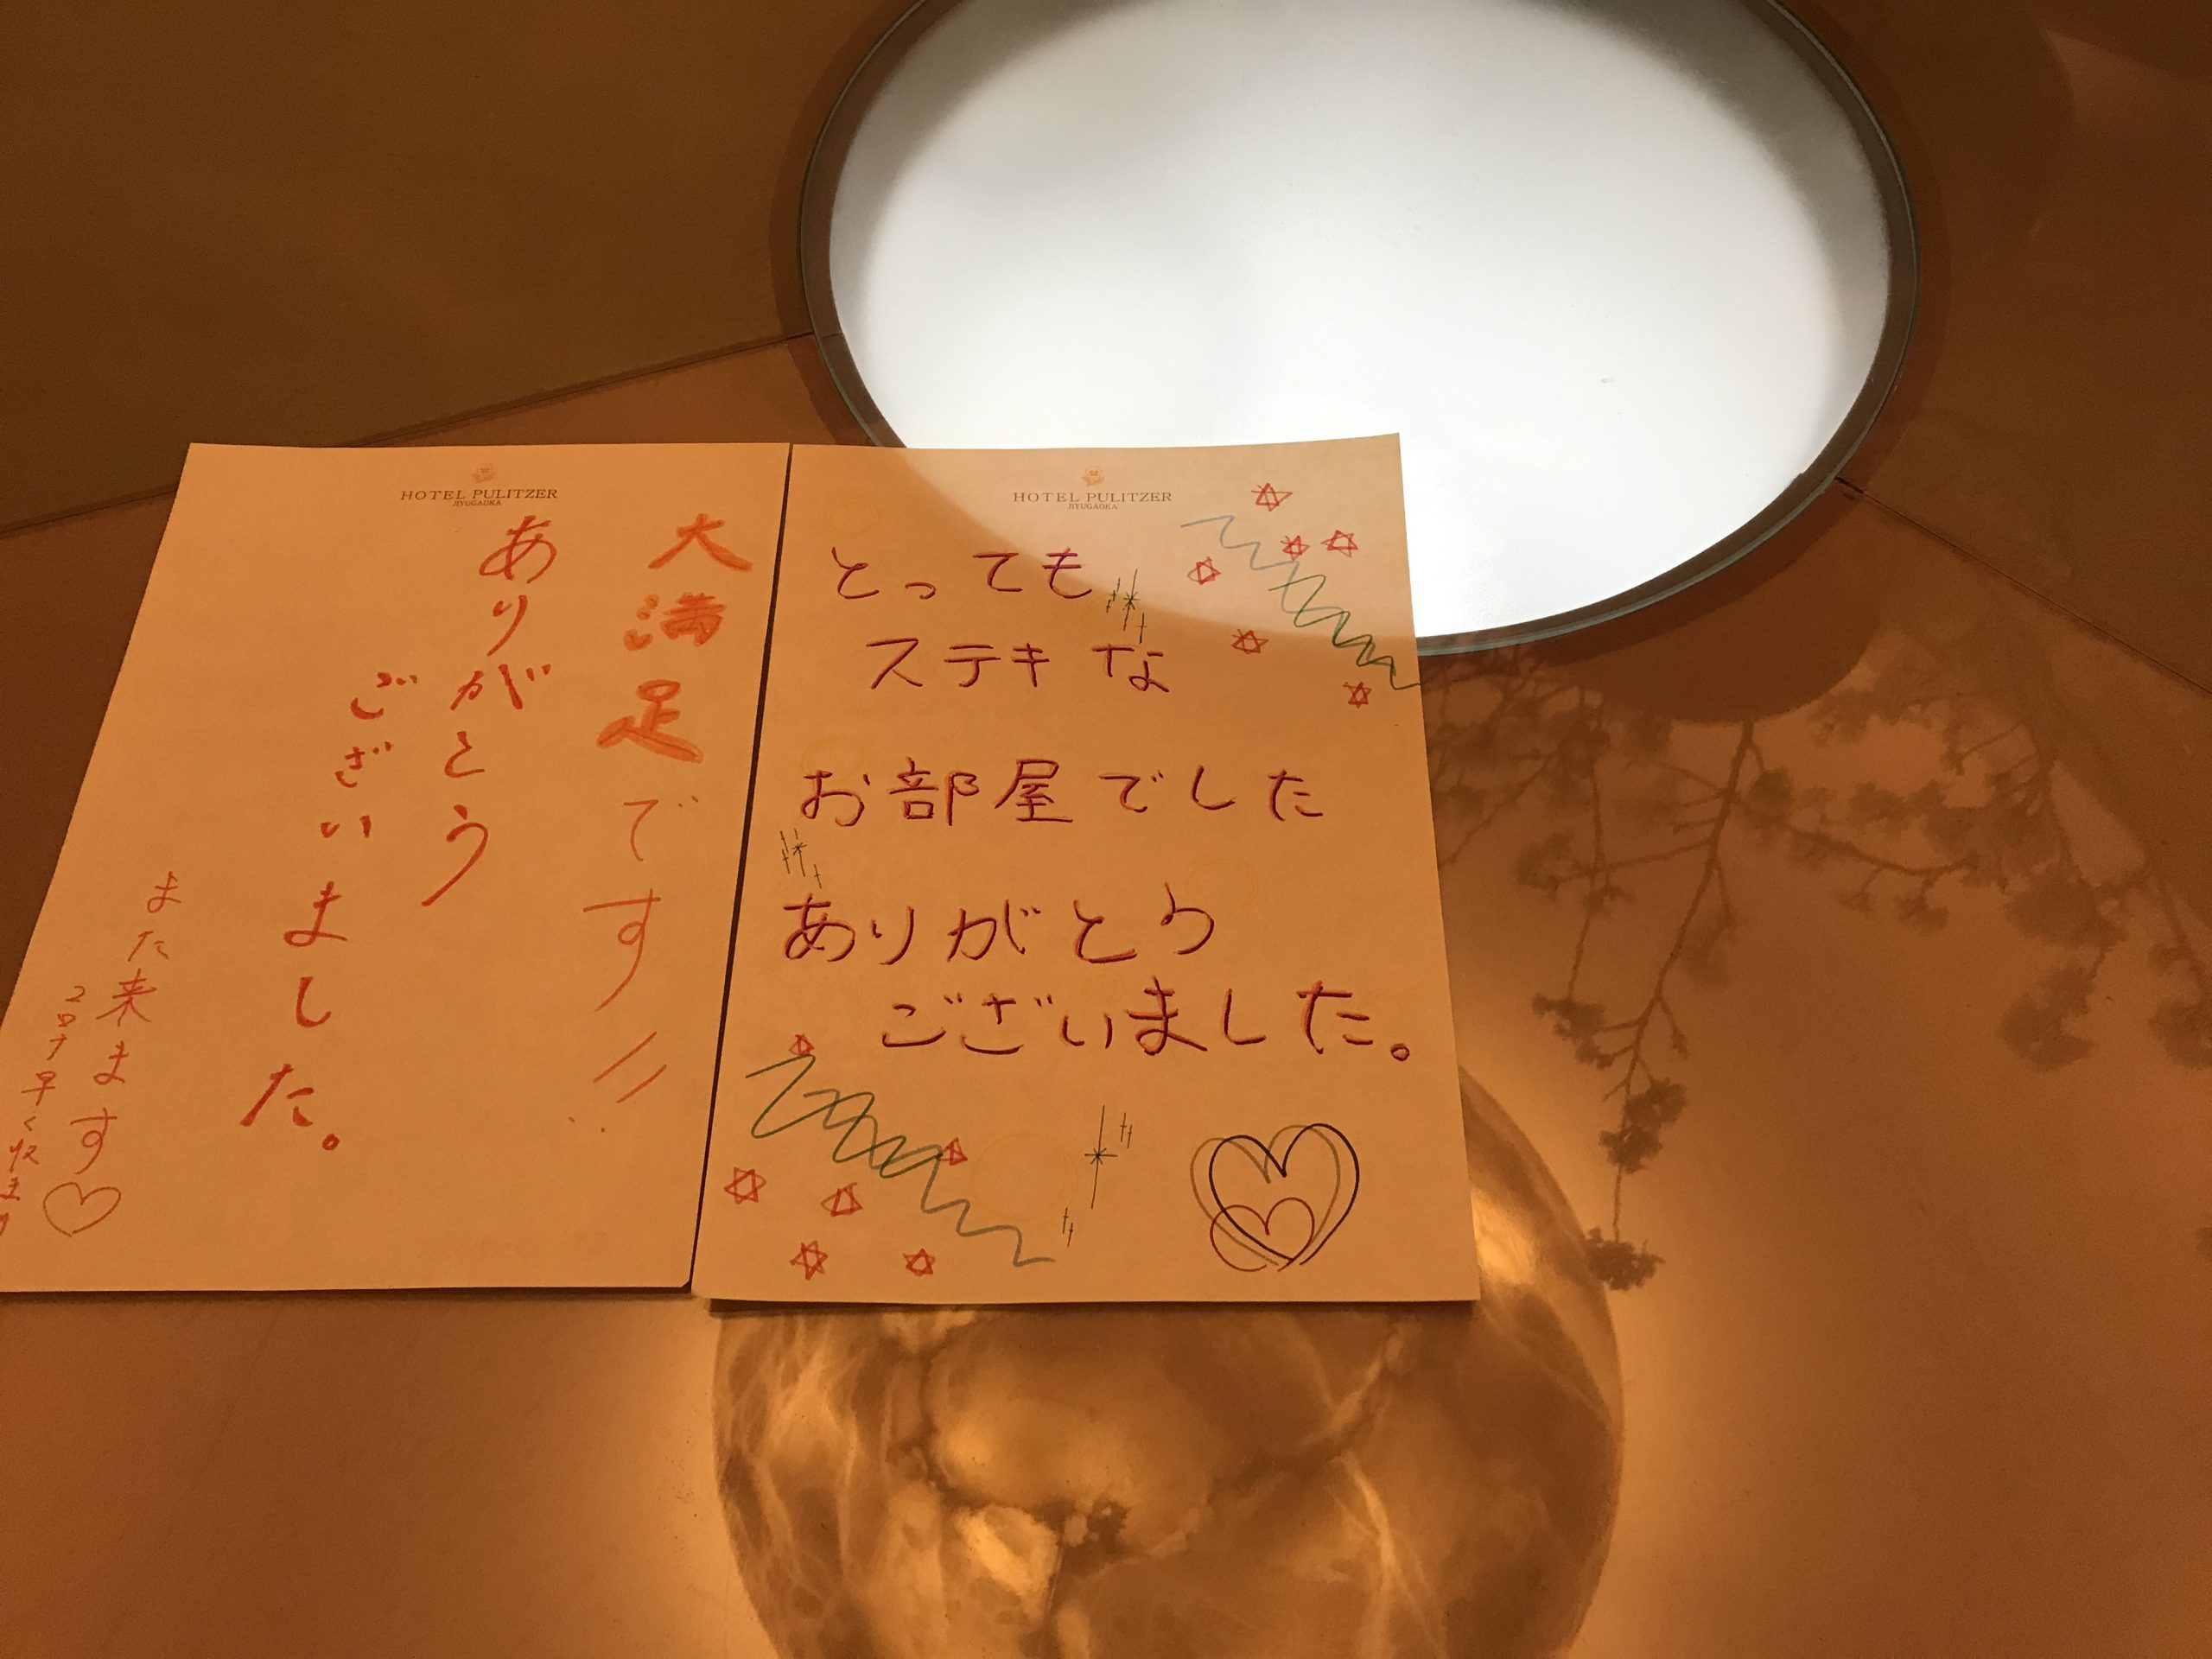 HOTEL PULITZER
JIYUGAOKA
大満足です
ありがとう
ございました。
また来ます
コロナ早く収まり
HOTEL PULITZER
JIYUGAOKA
とっても
ステキな
お部屋でした
ありがとう
ございました。